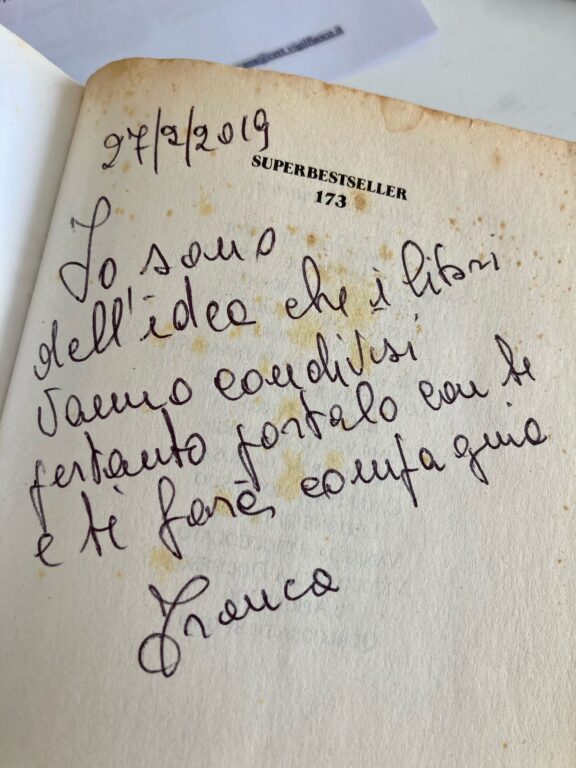 27/2/2019
SUPERBESTSELLER
173
Io sono
dell'idea che i libri
vanno condivisi
pertanto portalo con te
e ti farà compagnia
Franca